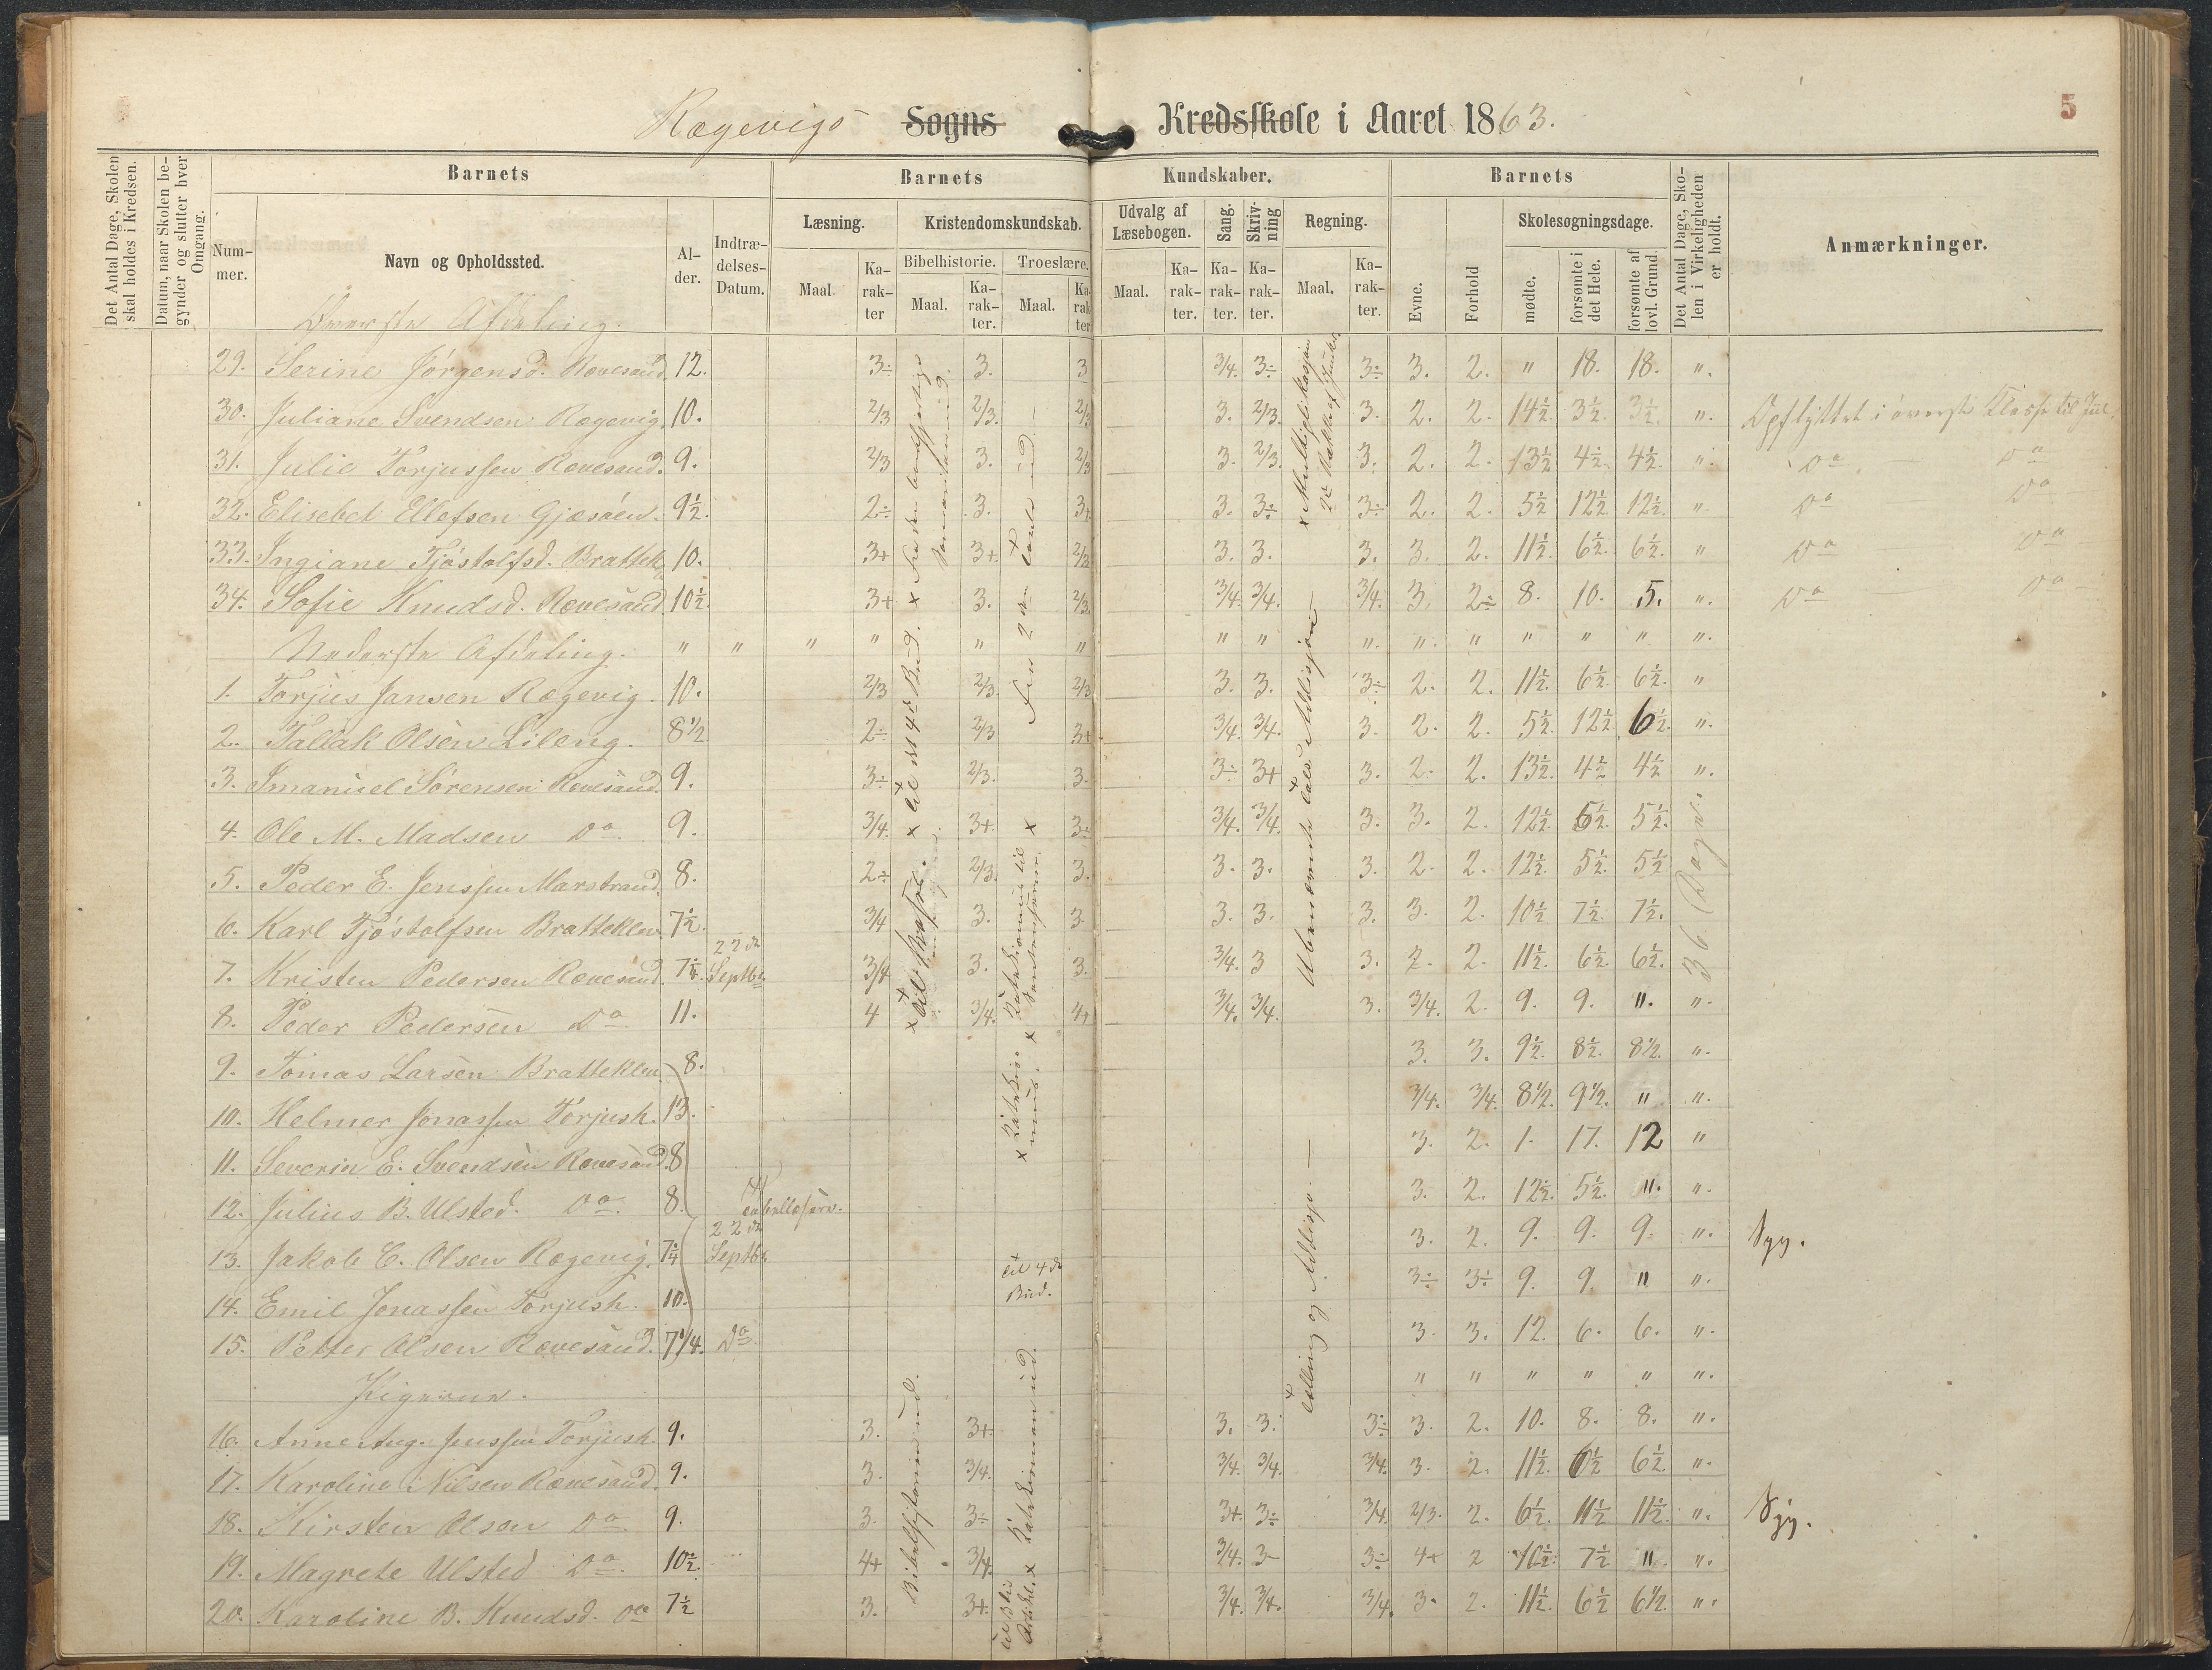 Rægevigs Sogns Kredsskole i Aaret 1863.
5
Det Antal Dage, Skolen skal holdes i Kredsen.
Datum, naar Skolen begynder og slutter hver Omgang.
Barnets
Nummer.
Navn og Opholdssted.
Alder.
Indtrædelses-Datum.
Barnets Kundskaber.
Læsning.
Maal.
Karakter
Kristendomskundskab.
Bibelhistorie.
Maal.
Karakter.
Troeslære.
Maal.
Karakter
Udvalg af Læsebogen.
Maal.
Karakter.
Sang.
Karakter.
Skrivning
Karakter.
Regning.
Maal.
Karakter.
Barnets
Evne.
Forhold
Skolesøgningsdage.
mødte.
forsømte i det Hele.
forsømte af lovl. Grund.
Det Antal Dage, Skolen i Virkeligheden er holdt.
Anmærkninger.
Øverste Afdeling.
29. Serine Jörgensd. Rævesand. 12. 3÷ 3. 3 3/4. 3÷ 3÷ 3. 2. " 18. 18. ".
30. Juliane Svendsen Rægevig. 10. 2/3 2/3. 2/3 3. 2/3. 3. 2. 2. 14½. 3½. 3½. ". Opflyttet i øverste Klasse til Jul.
31. Julie Torjussen Rævesand. 9. 2/3 3. 2/3 3. 2/3. 3. 2. 2. 13½ 4½. 4½. " Do Do
32. Elisebet Ellefsen Gjæsöen. 9½. 2÷ 3. 3. 3. 3÷ 3÷ 2. 2. 5½ 12½ 12½. " Do Do
33. Ingiane Tjöstolfsd. Brattek. 10. 3+ 3+ 2/3 3. 3. 3. 3. 2. 11½. 6½. 6½. " Do Do
34. Sofie Knudsd. Rævesand 10½. 3+ 3. 2/3. 3/4. 3/4. 3/4. 3. 2÷ 8. 10. 5. ". Do Do
Nederste Afdeling. " " " " " " " " ". ". " " " " ".
1. Torjus Jansen Rægevig. 10. 2/3 2/3. 2/3 3. 3. 3÷ 2. 2. 11½. 6½ 6½. "
2. Tallak Olsen Lileng. 8½ 2÷ 2/3 3+ 3/4. 3/4. 3. 2. 2. 5½. 12½ 6½. ".
3. Imanuel Sörensen Rævesand. 9. 3÷ 2/3. 3. 3÷ 3+ 3. 2. 2. 13½. 4½ 4½ ".
4. Ole M. Madsen Do 9. 3/4. 3+. 3÷ 3/4. 3/4. 3. 3. 2. 12½. 5½. 5½.
5. Peder E. Jenssen Marstrand. 8. 2÷ 2/3. 3. 3. 3. 3. 2. 2. 12½. 5½. 5½
6. Karl Tjöstolfsen Bratteklev. 7½. 3/4 3. 3. 3. 3. 3. 3. 2. 10½ 7½. 7½.
7. Kristen Pedersen Rævesand. 7¼. 22de Septbr. 3/4 3. 3. 3/4. 3 3. 2. 2. 11½. 6½. 6½.
8. Peder Pedersen Do 11. 4 3/4. 4+ 3/4. 3/4. 3. 3/4. 2. 9. 9. ". ".
9. Tomas Larsen Bratteklev. 8. 3. 3. 9½. 8½. 8½. ".
10. Helmer Jonassen Torjush. 13. 3/4. 3/4. 8½. 9½. " ".
11. Severin E. Svendsen Rævesand. 8 3. 2. 1. 17. 12 "
12. Julius B. Ulsted. Do 8. 3. 2. 12½. 5½. ". ".
13. Jakob C. Olsen Rægevig. 7¼ 22de Septbr. 3. 2. 9. 9. 9. ". Syg.
14. Emil Jonassen Torjush. 10. 3÷ 3÷ 9. 9. " ".
15. Petter Olsen Rævesand. 7¼. Do 3. 3. 12. 6. 6. ".
Pigerne. " " " " " ".
16. Anne Aug. Jenssen Torjush. 9. 3. 3+. 3. 3. 3÷ 3. 2. 10. 8. 8. ".
17. Karoline Nilsen Rævesand. 9. 3. 3/4. 3/4. 3/4. 3/4. 3. 2. 11½. 6½ 6½. ".
18. Kirsten Olsen Do 9. 3. 3÷ 3+ 3÷ 3/4. 2/3. 2. 6½. 11½ 11½. ". Syg.
19. Magrete Ulsted Do 10½. 4+ 3/4. 3/4. 3- 3÷ 4+ 2 10½. 7½ ". ".
20. Karoline B. Knudsd. Do 7½ 3. 3+. 3/4. 3/4. 3/4. 3. 2. 11½. 6½ 6½. ".
36 Dage.
x til det 4de Bud.
Bibelhistorien ud.
til 4de Bud.
Ubenævnte Tals Addisjon
Tæling og Addisjo.
x Multiplikasjon